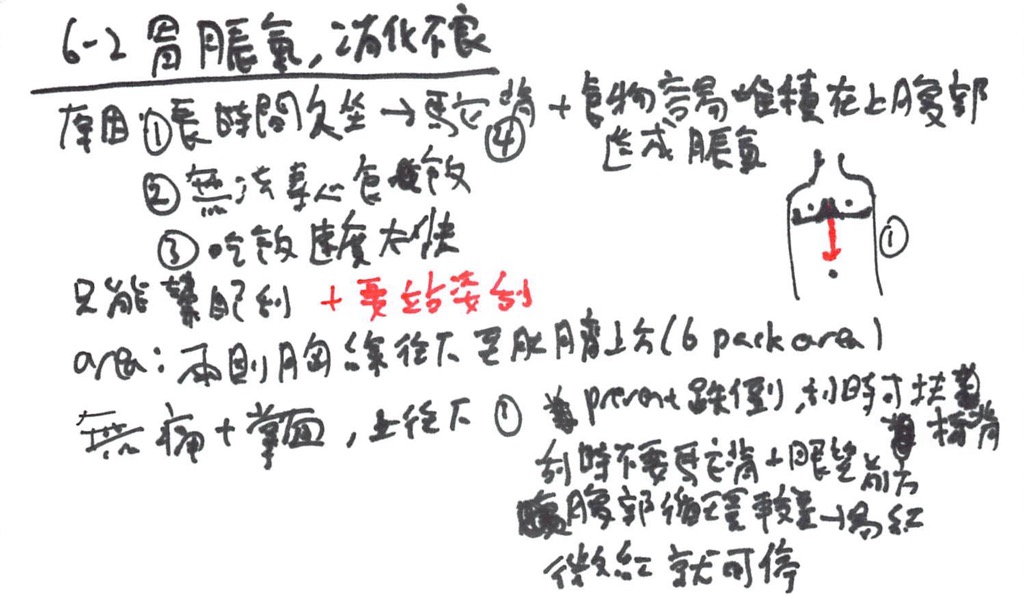 6-2 胃脹氣,消化不良
原因 ①長時間久坐→駝背 + 食物容易堆積在上腹部
④ 造成脹氣
②無法專心食飯
③吃飯速度太快
①
只能紫配刮 +要站姿刮
area:兩側胸線往下至肚臍上方(6 pack area)
無痛+掌面,上往下 ① prevent跌倒,刮時可扶著
椅背
刮時不要駝背+眼望前方
腹部循環較差→易紅
微紅就可停